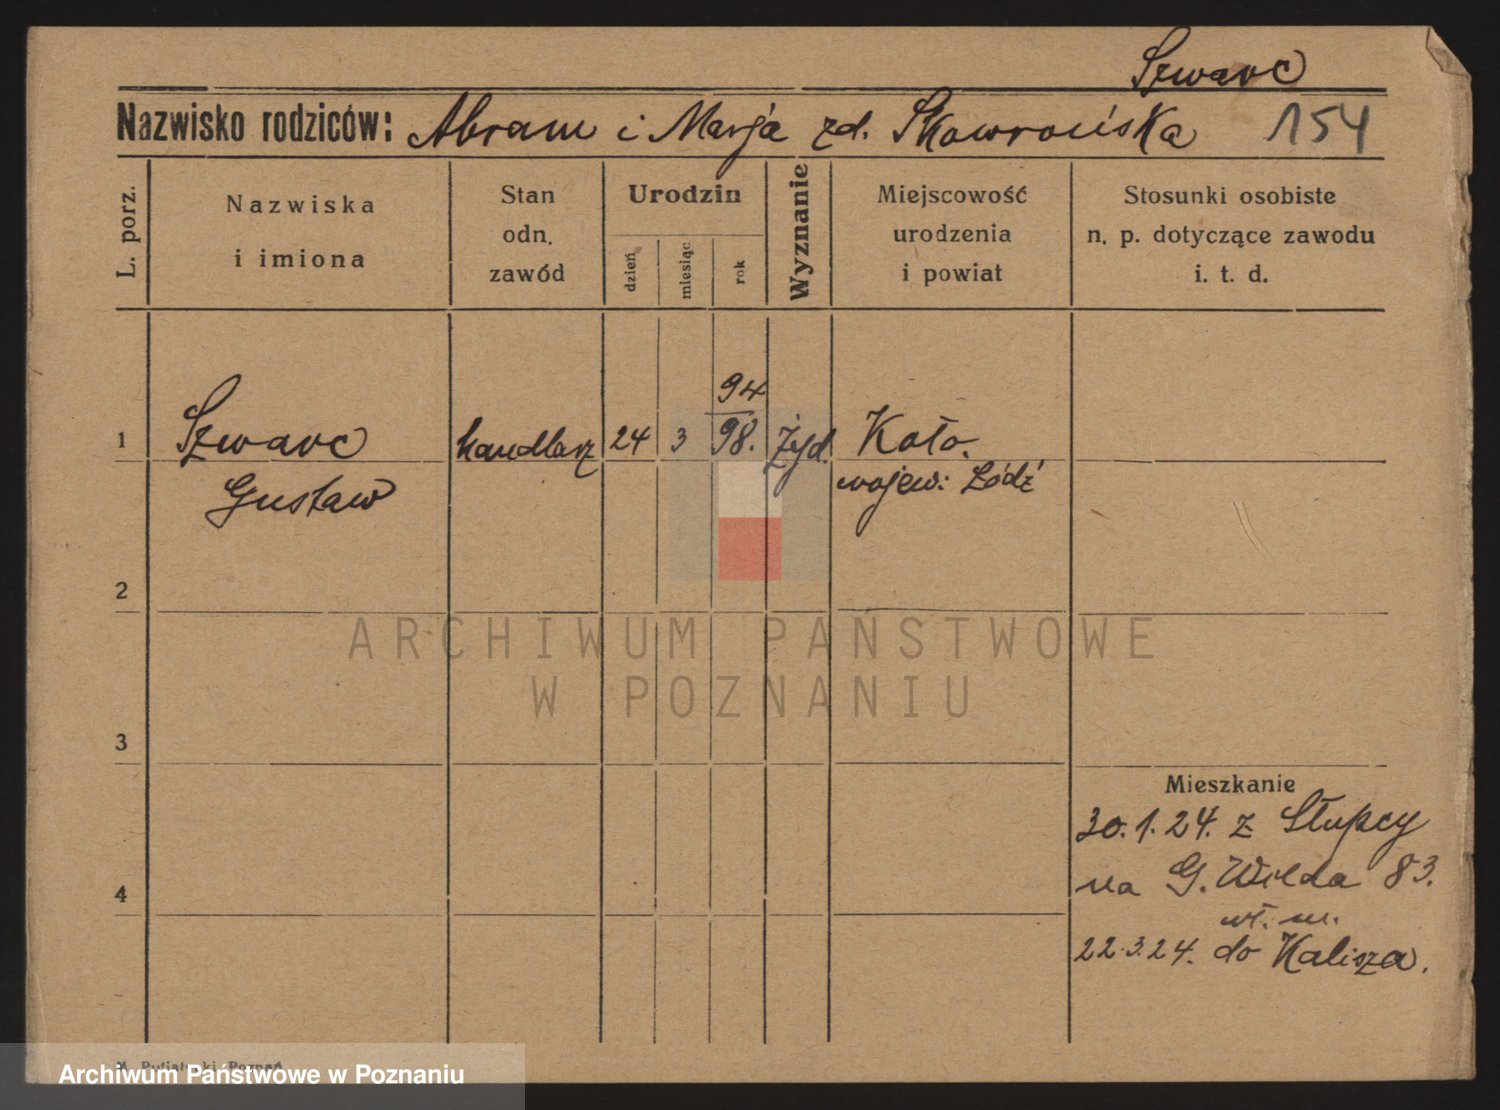 Szwarc
Nazwisko rodziców: Abram i Marja zd. Skowrońska 154
L. porz.
Nazwiska
i imiona
Stan
odn.
zawód
Urodzin
dzień
miesiąc
rok
Wyznanie
Miejscowość
urodzenia
i powiat
Stosunki osobiste
n. p. dotyczące zawodu
i. t. d.
94
1 Szwarc handlarz 24 3 98. Żyd. Koło.
Gustaw wojew: Łódź
2
ARCHIWUM PAŃSTWOWE
W POZNANIU
3
Mieszkanie
30.1.24. z Słupcy
4 na G. Wilda 83.
wł. m.
22.3.24. do Kalisza.
Archiwum Państwowe w Poznaniu